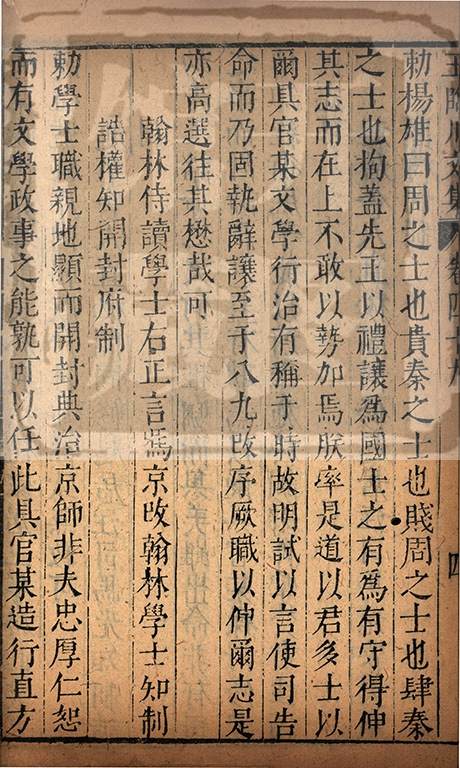 王臨川文集 卷四十九 四
勅楊雄曰周之士也貴秦之士也賤周之士也肆秦
之士也拘蓋先王以禮讓為國士之有為有守得伸
其志而在上不敢以勢加焉朕率是道以君多士以
爾具官某文學行治有稱于時故明試以言使司告
命而乃固執辭讓至于八九改序厥職以伸爾志是
亦高選往其懋哉可
翰林侍讀學士右正言馮京改翰林學士知制
誥權知開封府制
勅學士職親地顯而開封典治京師非夫忠厚仁恕
而有文學政事之能孰可以任此具官某造行直方